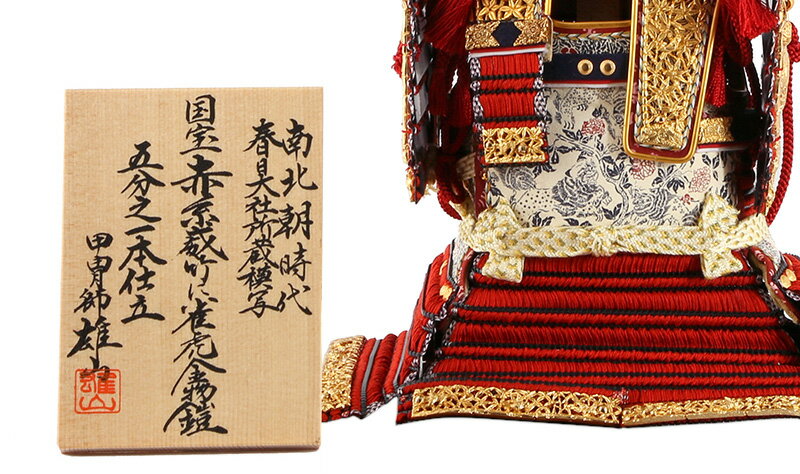 南北朝時代
春日大社所蔵模写
国宝赤糸威竹に雀虎金物鎧
五分之一本仕立
甲冑師雄山
雄山